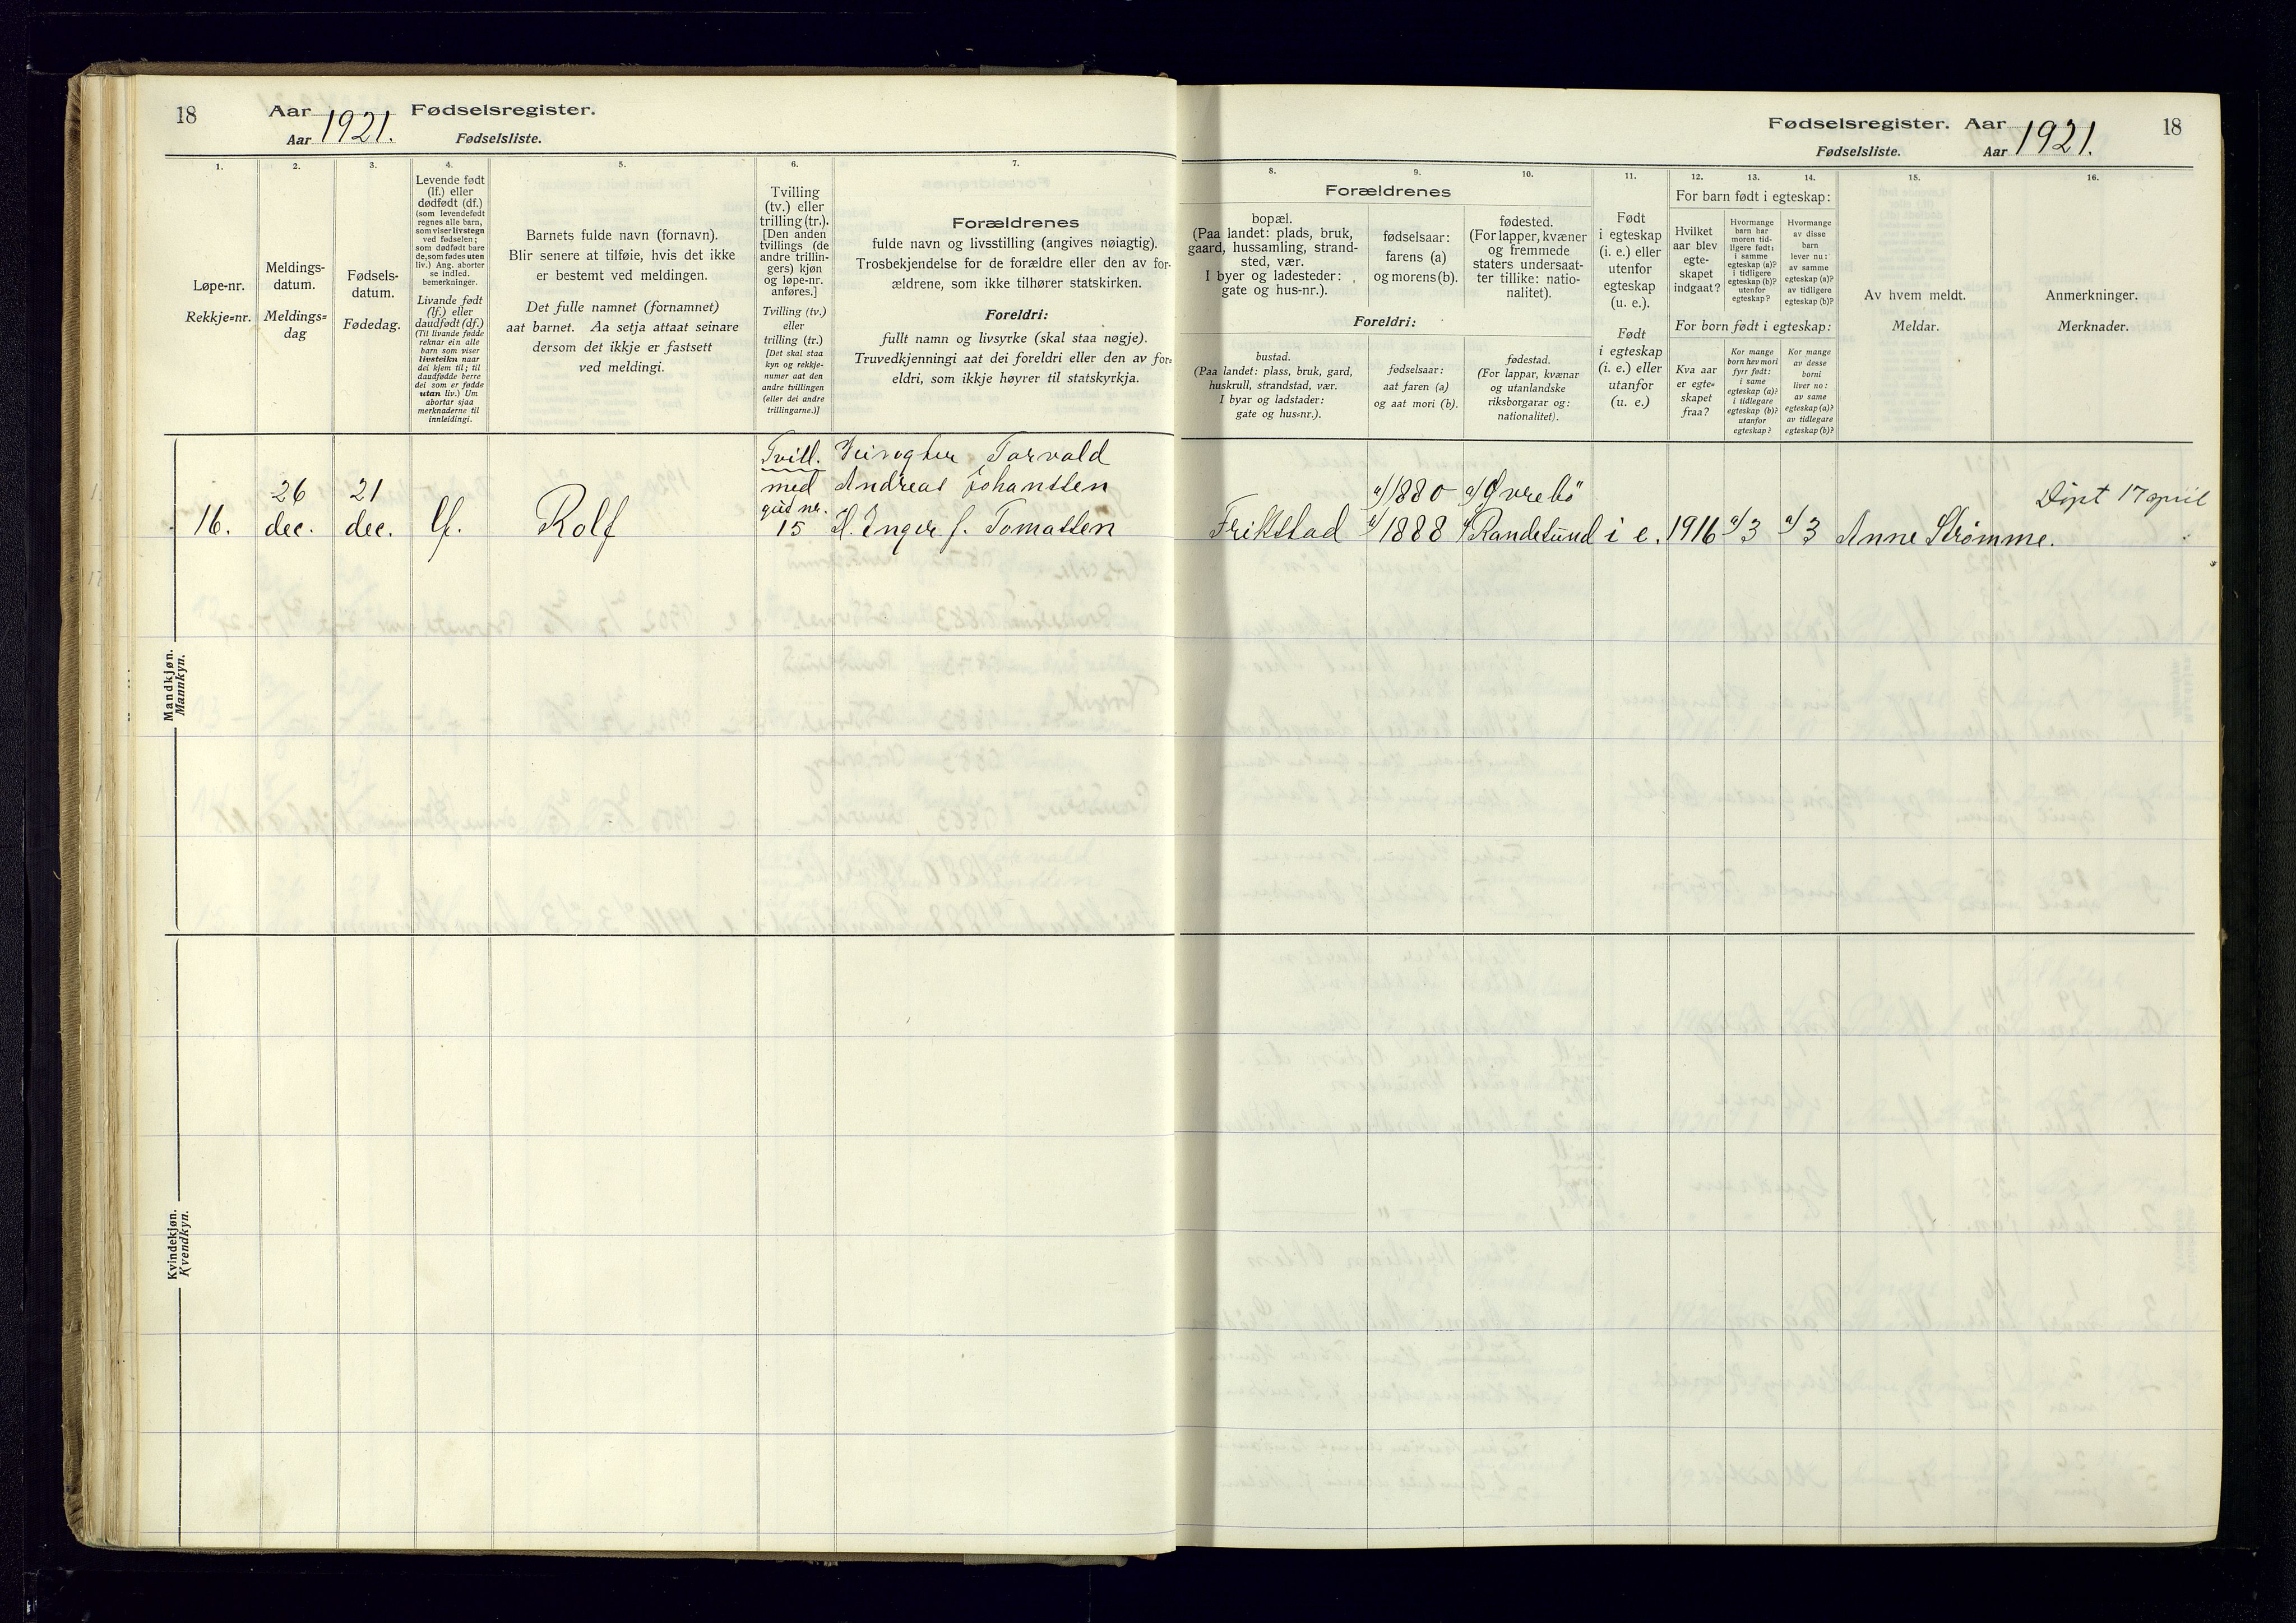 18
Aar 1921. Fødselsregister.
Aar Fødselsliste.
1. 2. 3. 4. 5. 6. 7.
Løpe-nr.
Rekkje=nr.
Meldings-
datum.
Meldings=
dag
Fødsels-
datum.
Fødedag.
Levende født
(lf.) eller
dødfødt (df.)
(som levendefødt
regnes alle barn,
som viser livstegn
ved fødselen;
som dødfødt bare
de, som fødes uten
liv.) Ang. aborter
se indled.
bemerkninger.
Livande født
(lf.) eller
daudfødt (df.)
(Til livande fødde
reknar ein alle
barn som viser
livsteikn naar
dei kjem til; til
daudfødde berre
dei som er fødde
utan liv.) Um
abortar sjaa
merknaderne til
innleidingi.
Barnets fulde navn (fornavn).
Blir senere at tilføie, hvis det ikke
er bestemt ved meldingen.
Det fulle namnet (fornamnet)
aat barnet. Aa setja attaat seinare
dersom det ikkje er fastsett
ved meldingi.
Tvilling
(tv.) eller
trilling (tr.).
[Den anden
tvillings (de
andre trillin-
gers) kjøn
og løpe-nr.
anføres.]
Tvilling (tv.)
eller
trilling (tr.)
[Det skal staa
kyn og rekkje-
numer aat den
andre tvillingen
(eller dei andre
trillingarne.)]
Forældrenes
fulde navn og livsstilling (angives nøiagtig).
Trosbekjendelse for de forældre eller den av for-
ældrene, som ikke tilhører statskirken.
Foreldri:
fullt namn og livsyrke (skal staa nøgje).
Truvedkjenningi aat dei foreldri eller den av for=
eldri, som ikkje høyrer til statskyrkja.
Mandkjøn.
Mannkyn.
16. 26 dec. 21 dec. lf. Rolf
Tvill.
med
gut nr.
15
Torvald
Andreas Johanssen
H. Inger f. Tomassen
Kvindekjøn.
Kvendkyn.
Fødselsregister. Aar 1921. 18
Fødselsliste. Aar
8. 9. 10. 11. 12. 13. 14. 15. 16.
Forældrenes
bopæl.
(Paa landet: plads, bruk,
gaard, hussamling, strand-
sted, vær.
I byer og ladesteder:
gate og hus-nr.).
fødselsaar:
farens (a)
og morens (b).
fødested.
(For lapper, kvæner
og fremmede
staters undersaat-
ter tillike: natio-
nalitet).
Foreldri:
bustad.
(Paa landet: plass, bruk, gard,
huskrull, strandstad, vær.
I byar og ladstader:
gate og hus=nr.).
fødselsaar:
aat faren (a)
og aat mori (b).
fødestad.
(For lappar, kvænar
og utanlandske
riksborgarar og:
nationalitet).
Født
i egteskap
(i. e.) eller
utenfor
egteskap
(u. e.).
Født
i egteskap
(i. e.) eller
utanfor
(u. e.)
For barn født i egteskap:
Hvilket
aar blev
egte-
skapet
indgaat?
Hvormange
barn har
moren tid-
ligere født:
i samme
egteskap (a)?
i tidligere
egteskap (b)?
utenfor
egteskap?
Hvormange
av disse
barn
lever nu:
av samme
egteskap (a)?
av tidligere
egteskap (b)?
For born født i egteskap:
Kva aar
er egte=
skapet
fraa?
Kor mange
born hev mori
fyrr født:
i same
egteskap (a)?
i tidlegare
egteskap (b)?
utanfor
egteskap?
Kor mange
av desse
borni
liver no:
av same
egteskap (a)?
av tidlegare
egteskap (b)?
Av hvem meldt.
Meldar.
Anmerkninger.
Merknader.
a/1880 a/Øvrebö Døpt 17 april
Frikstad b/1888 b/Randesund i e. 1916 a/3 a/3 Anne Strømme.